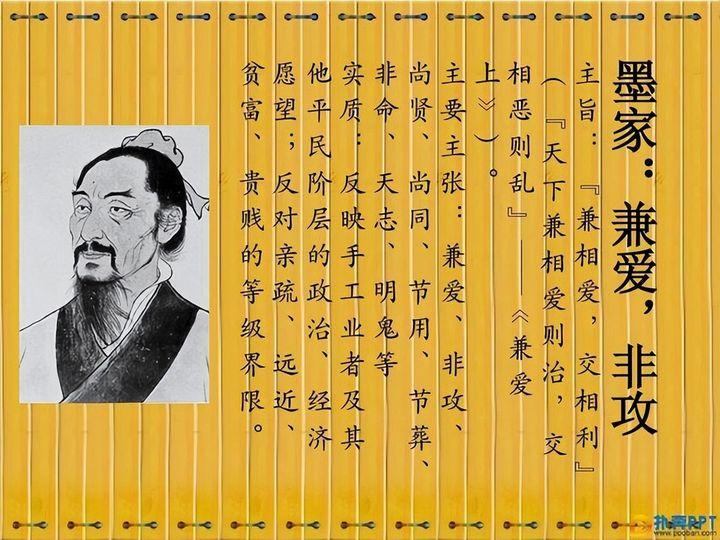 墨家：兼爱，非攻
主旨：『兼相爱，交相利』
（『天下兼相爱则治，交
相恶则乱』——《兼爱
上》）。
主要主张：兼爱、非攻、
尚贤、尚同、节用、节葬、
非命、天志、明鬼等
实质：反映手工业者及其
他平民阶层的政治、经济
愿望；反对亲疏、远近、
贫富、贵贱的等级界限。
扑奔PPT
www.pooban.com